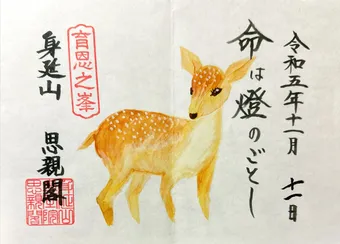 令和五年十一月 十一日
命は燈のごとし
育恩之峯
身延山
思親閣